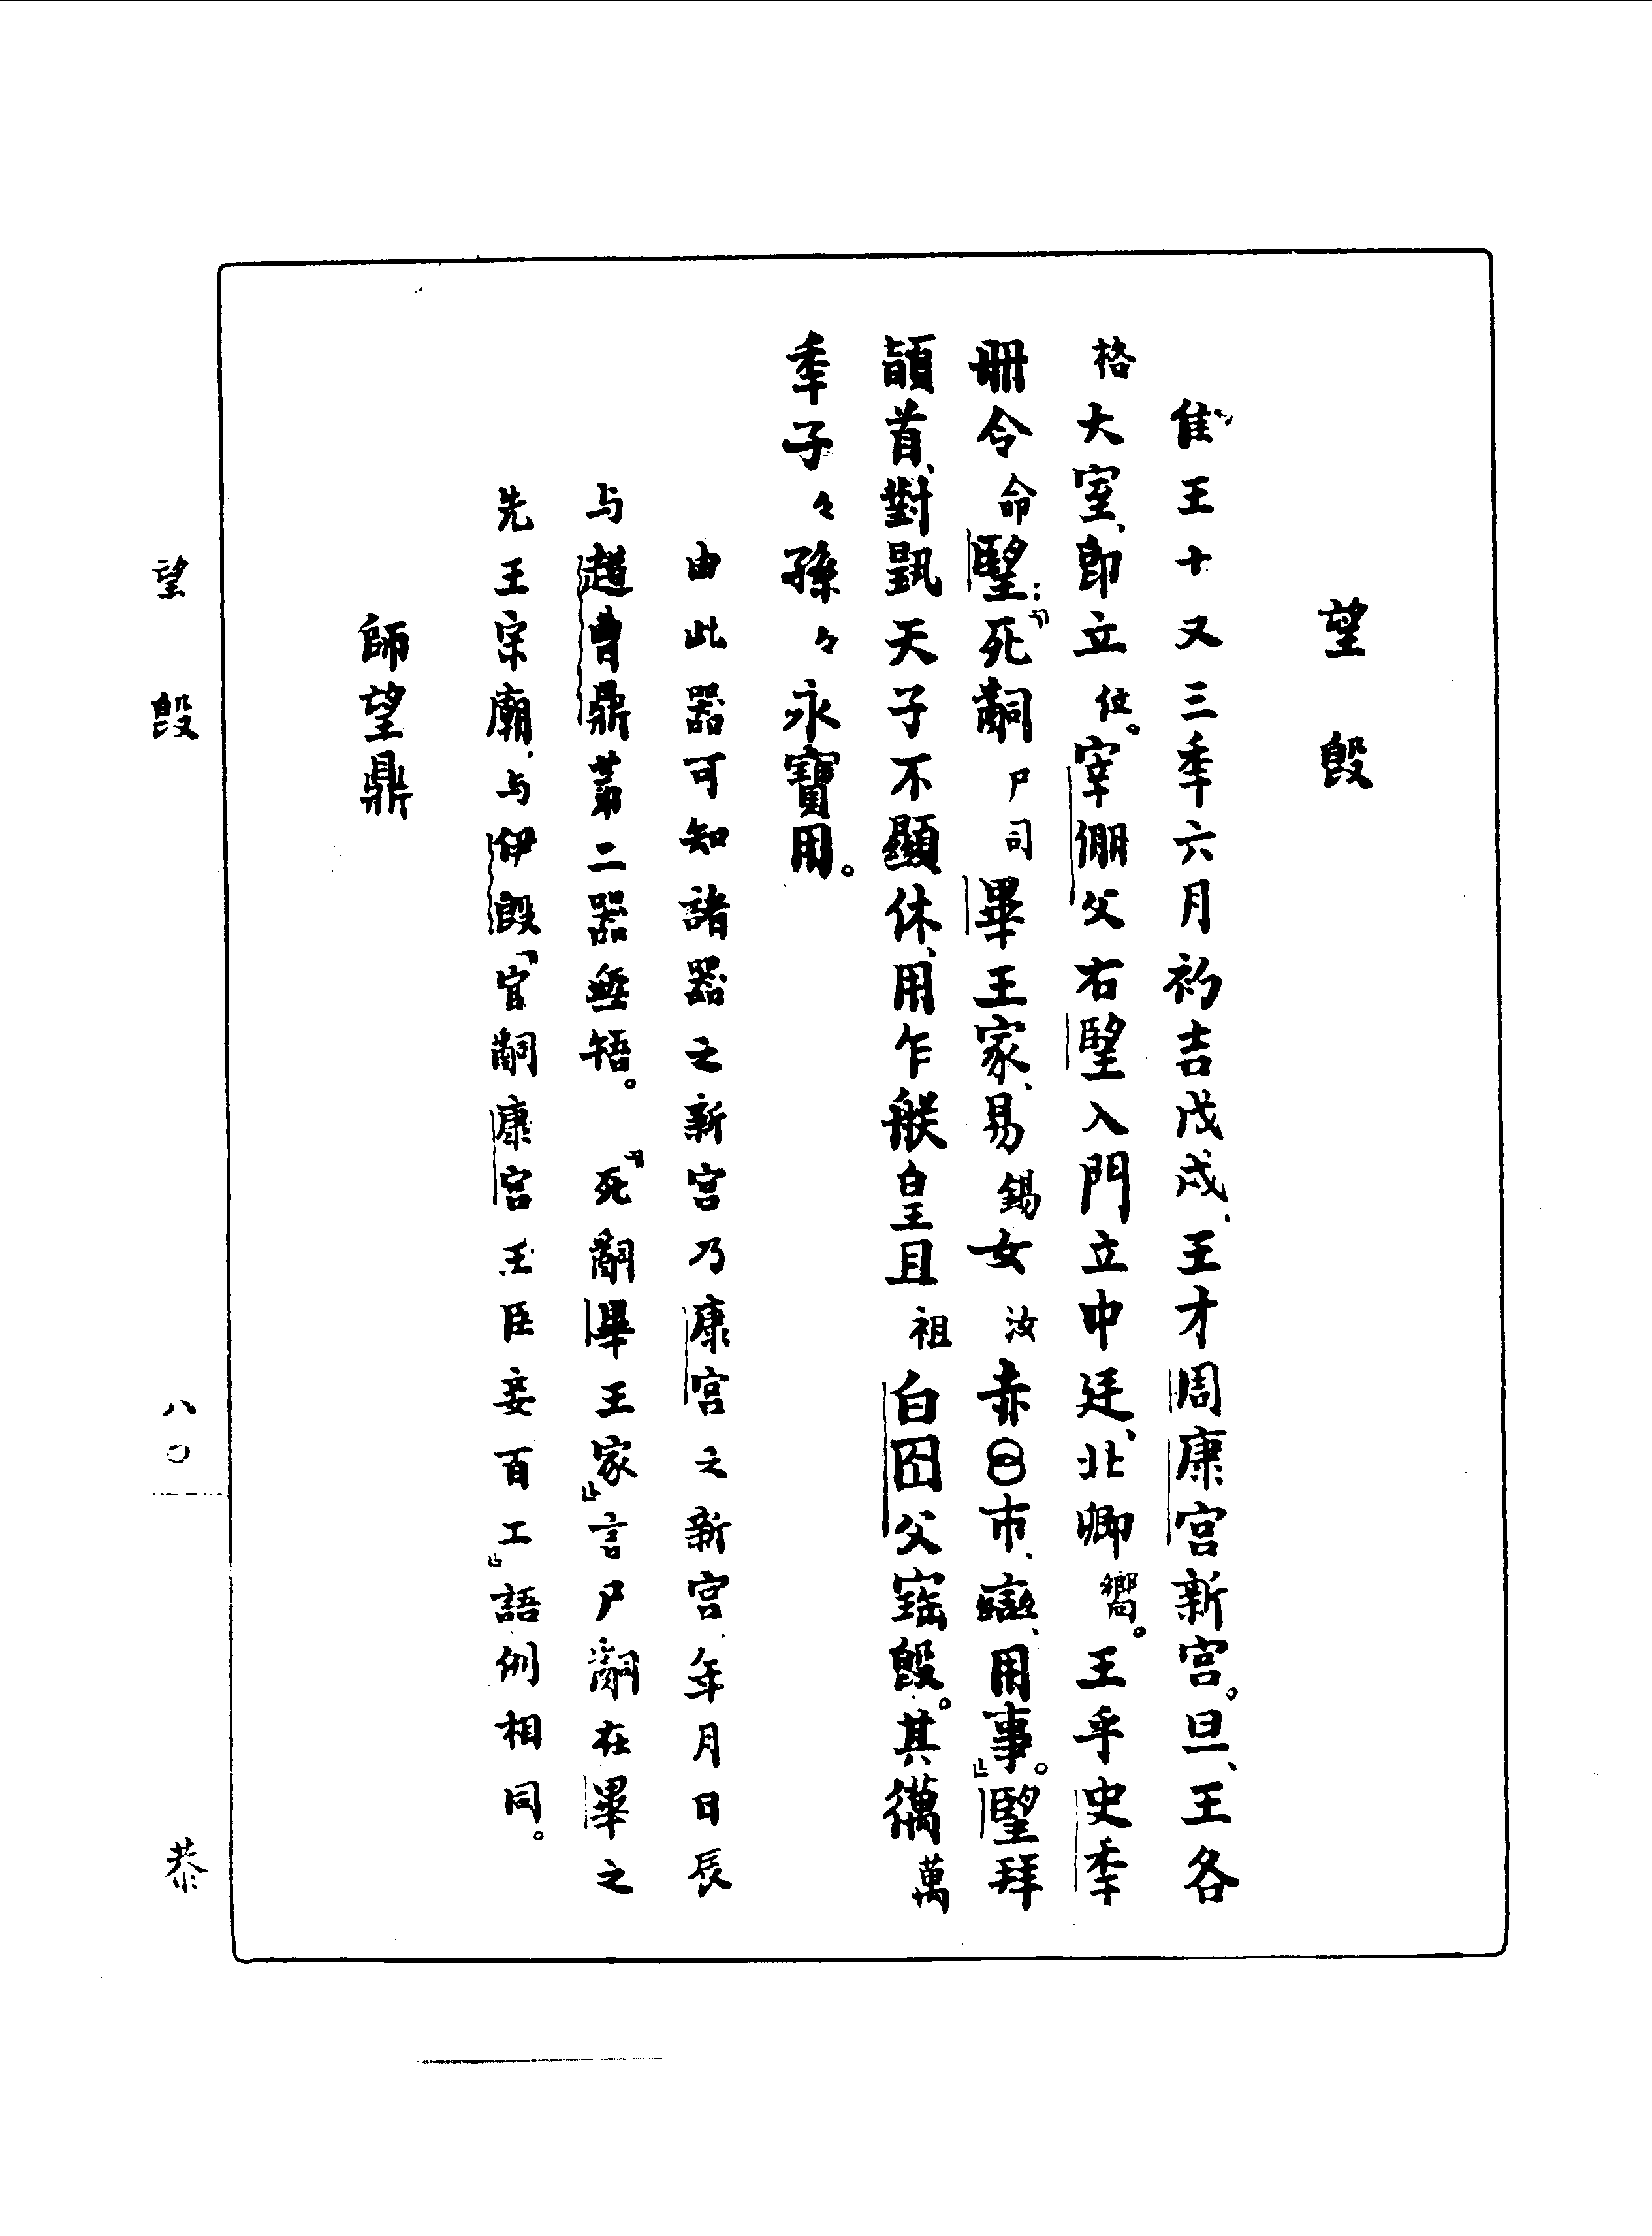 望𣪘
隹王十又三年六月初吉戊戌、王才周康宮新宮。旦、王各
格大室、即立位。宰倗父右朢入門立中廷、北卿嚮。王乎史年
冊令命朢：『死𤔲尸司畢王家、易錫女汝赤市、䜌、用事。』朢拜
𩒨首、對𩁹天子不顯休、用乍朕皇且祖白囧父寶𣪘。其萬
年子々孫々永寶用。
由此器可知諸器之新宮乃康宮之新宮、年月日辰
与趞曹鼎苐二器無啎。『死𤔲畢王家』言尸𤔲在畢之
先王宗廟、与伊𣪘『官𤔲康宮王臣妾百工』語例相同。
師望鼎
望𣪘
八〇
恭